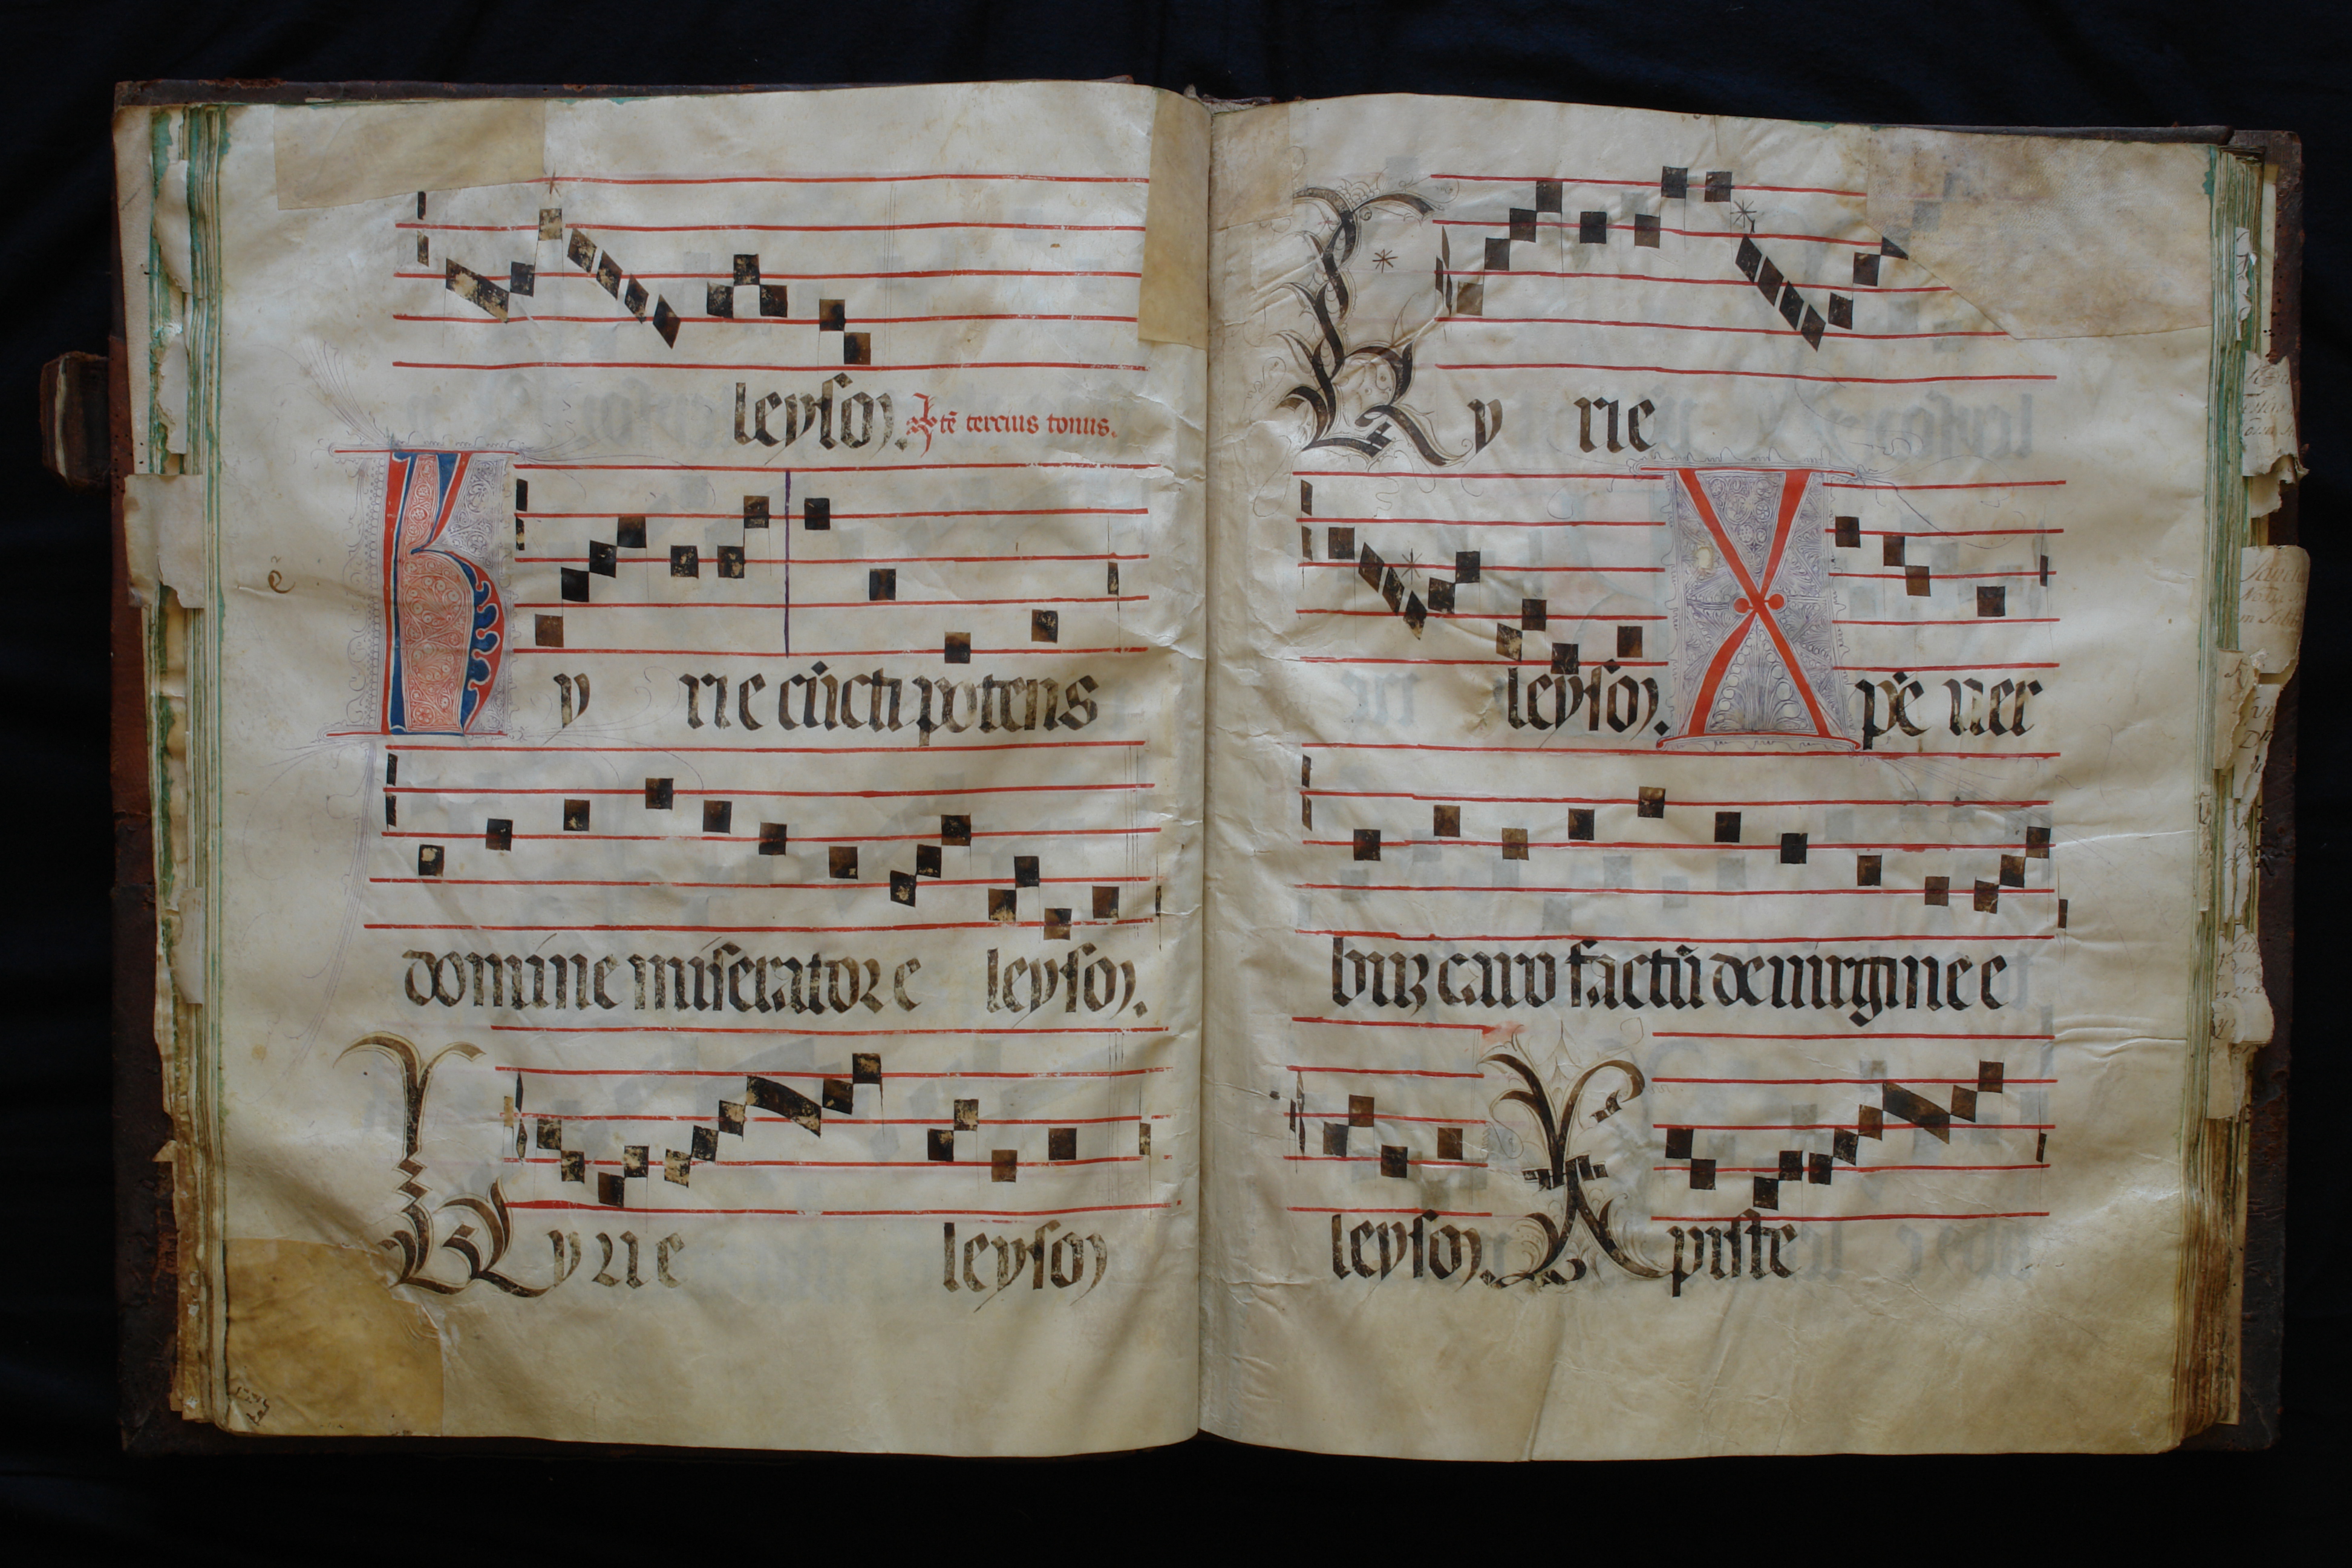 leyson. Xp̄e tercius tonus.
Ky rie cūcti potens
domine miserator e leyson.
Kyrie leyson
Ky rie
leyson. Xp̄e ver
buꝫ caro factū de uirgine e
leyson. Xpiste